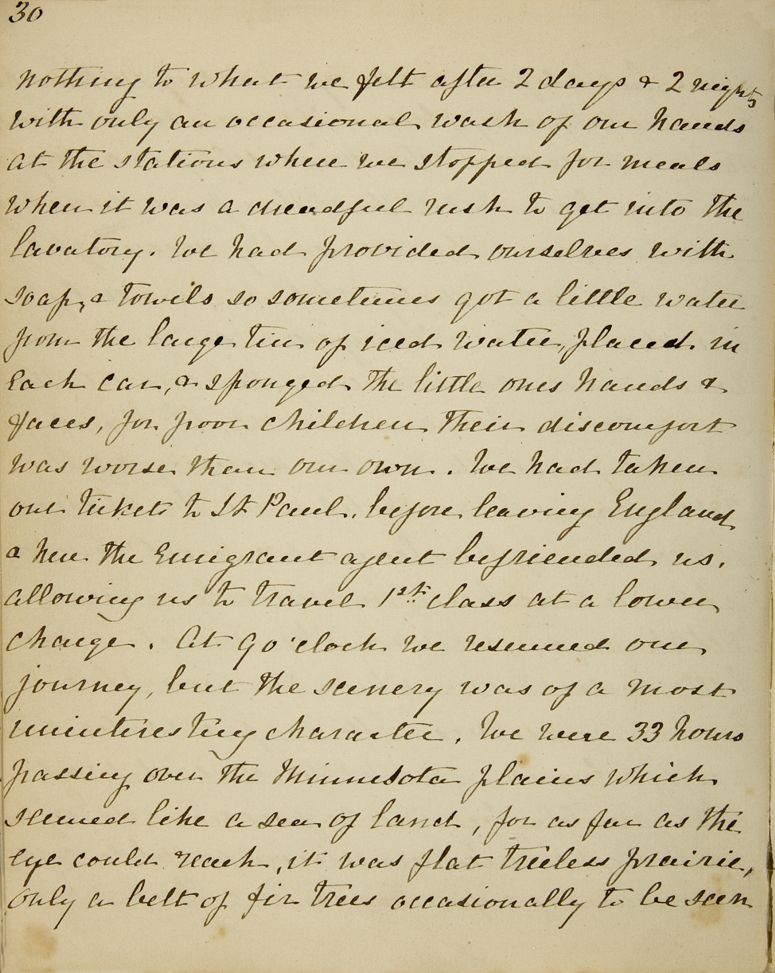 30
nothing to what we felt after 2 days & 2 nights
with only an occasional wash of our hands
at the stations where we stopped for meals
when it was a dreadful rush to get into the
lavatory. We had provided ourselves with
soap, & towels so sometimes got a little water
from the large tin of iced water, placed in
each car, & sponged the little ones hands &
faces, for poor children their discomfort
was worse than our own. We had taken
our tickets to St Paul, before leaving England
& here the Emigrant agent befriended us,
allowing us to travel 1st class at a lower
charge. At 9 o'clock we resumed our
journey, but the scenery was of a most
uninteresting character. We were 33 hours
passing over the Minnesota plains which
seemed like a sea of land, for as far as the
eye could reach, it was flat treeless prairie,
only a belt of fir trees occasionally to be seen